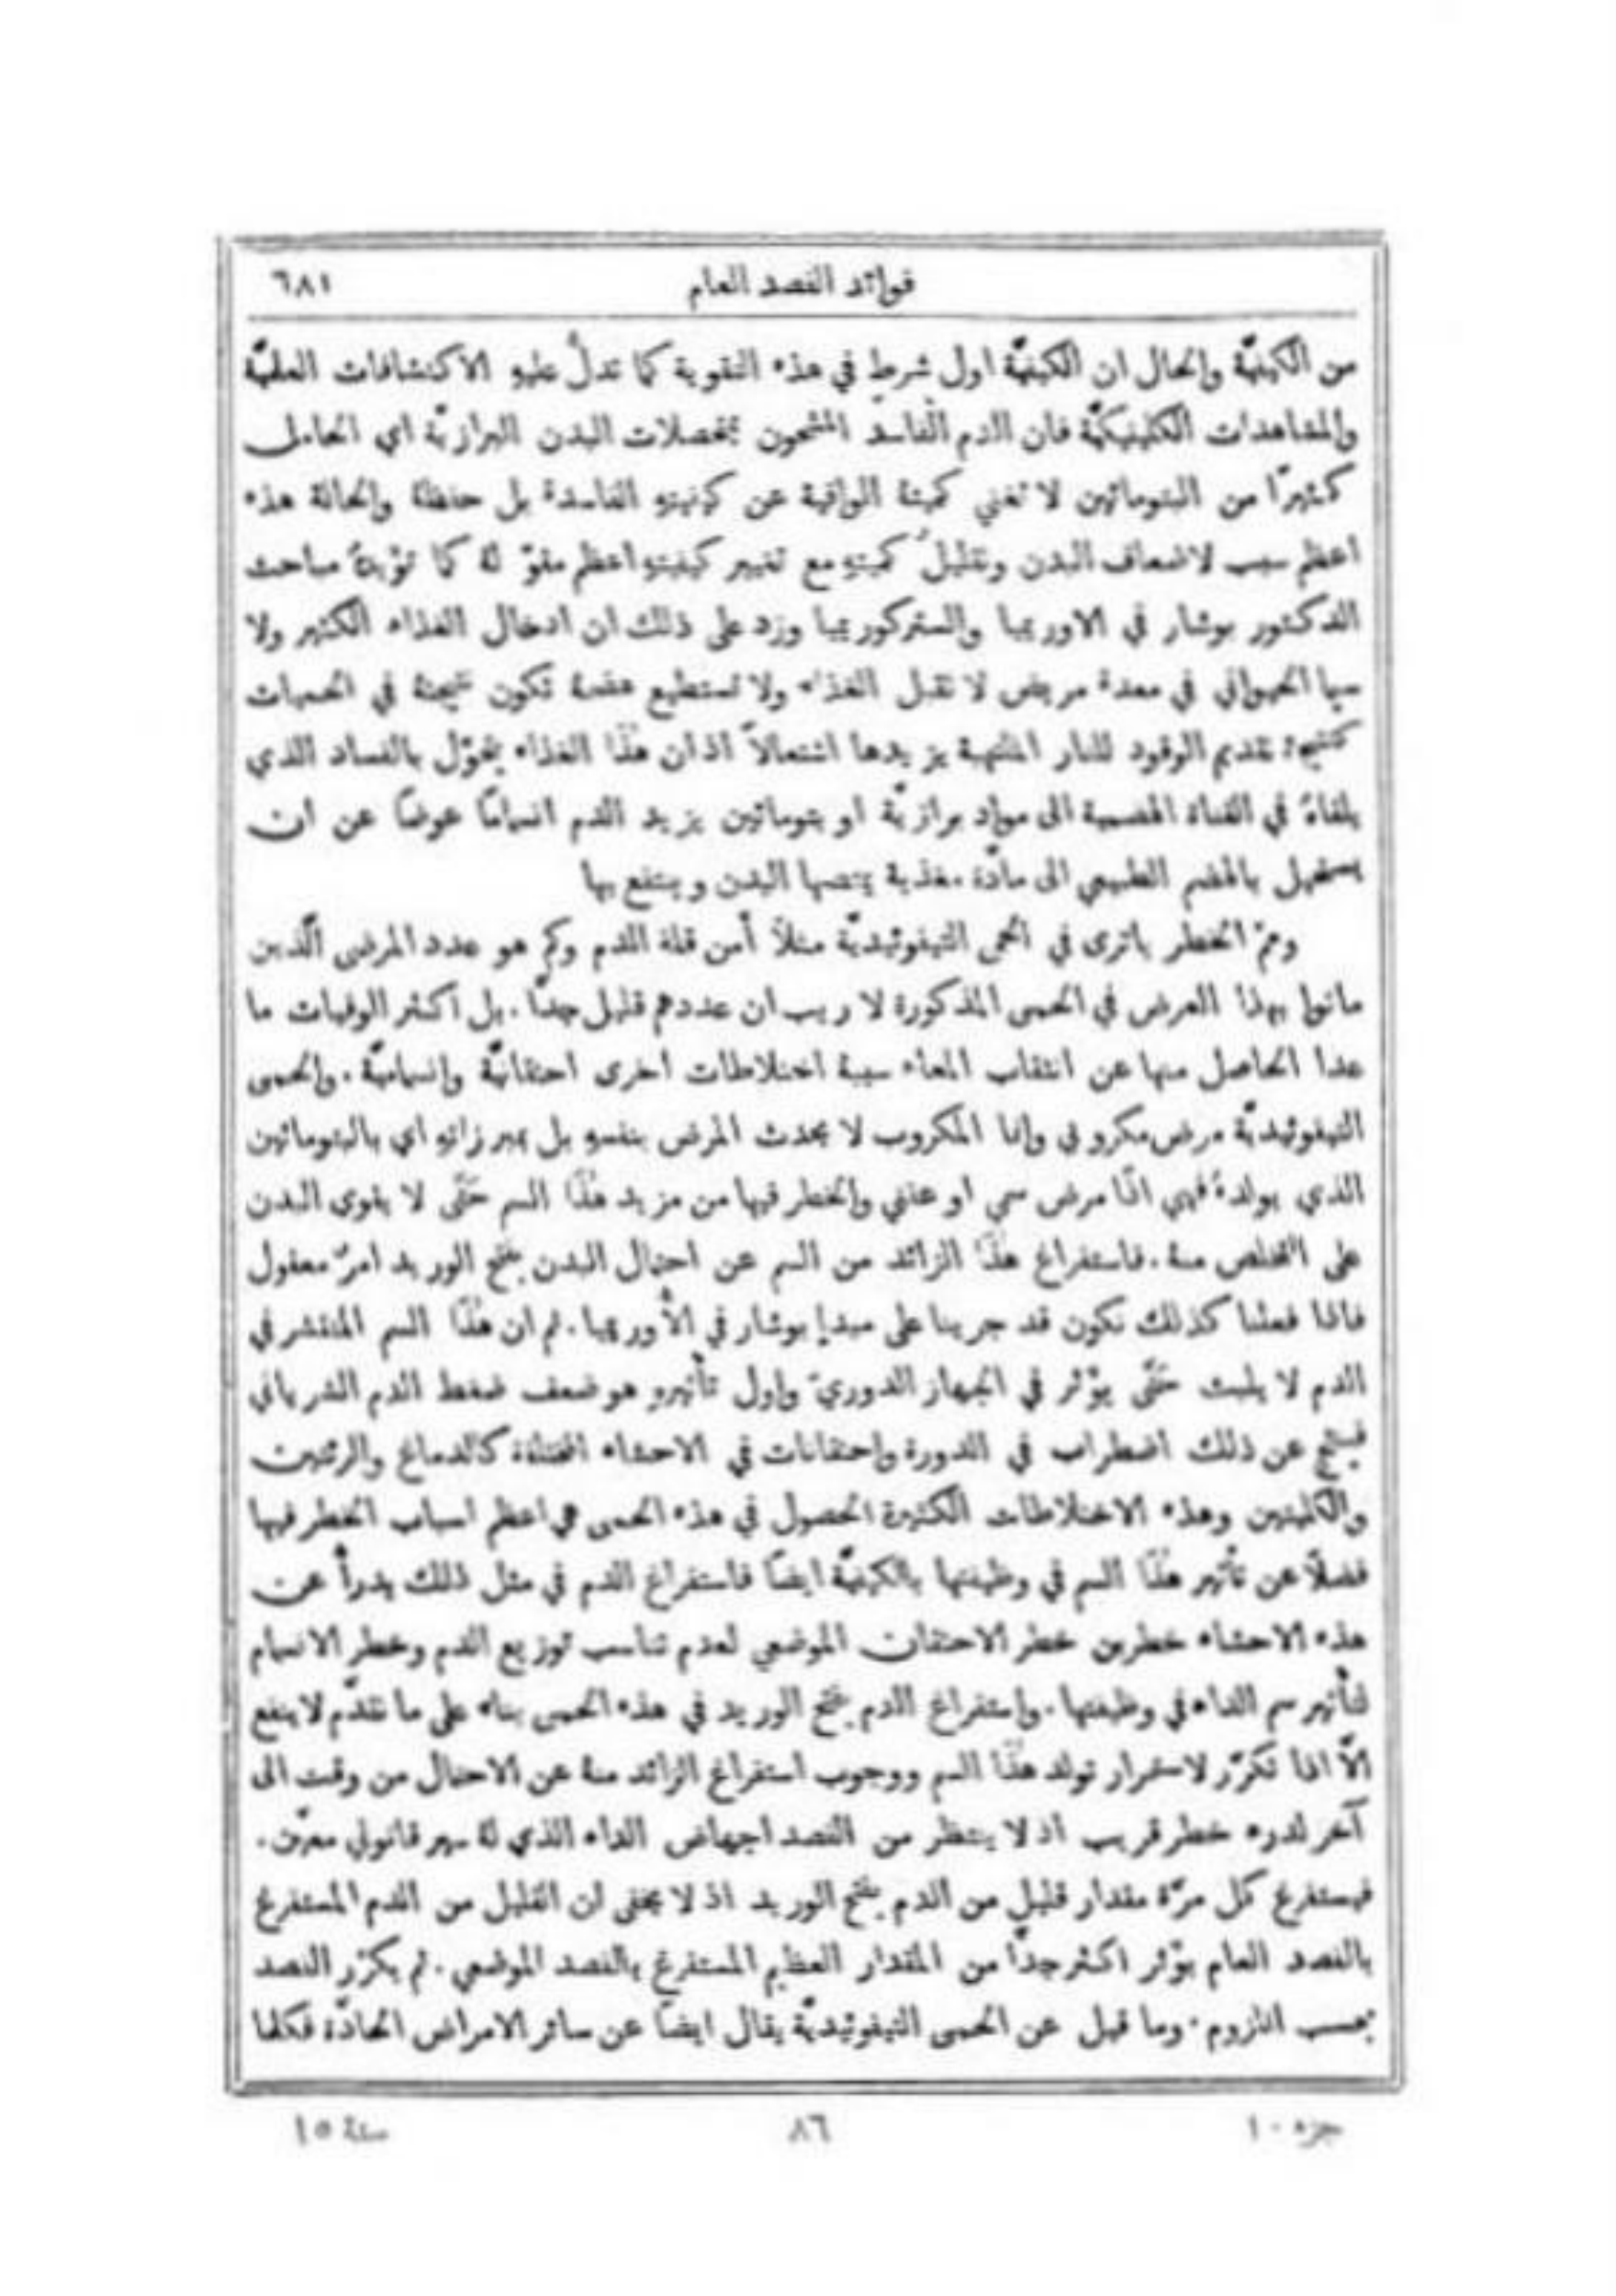 فوائد الفصد العام ٦٨١
من الكيفيَّة والحال ان الكيفيَّة اول شرطٍ في هذه التقوية كما تدلُّ عليهِ الاكتشافات العلميَّة
والمشاهدات الكلينيكيَّة فان الدم الفاسد المشحون بمتحصلات البدن البرازيَّة اي الحامل
كثيرًا من البتومائين لا تغني كميتهُ الوافية عن كيفيتهِ الفاسدة بل حفظهُ والحالة هذه
اعظم سبب لاضعاف البدن وتقليلُ كميتهِ مع تغيير كيفيتهِ اعظم مقوّ لهُ كما تؤيدهُ مباحث
الدكتور بوشار في الاوريميا والستركوريميا وزد على ذلك ان ادخال الغذاء الكثير ولا
سيما الحيواني في معدة مريض لا تقبل الغذاء ولا تستطيع هضمهُ تكون نتيجتهُ في الحميات
كنتيجة تقديم الوقود للنار الملتهبة يزيدها اشتعالاً اذ ان هذا الغذاء يتحوَّل بالفساد الذي
يلقاهُ في القناة الهضمية الى مواد برازيَّة او بتومائين يزيد الدم انسمامًا عوضًا عن ان
يستحيل بالهضم الطبيعي الى مادَّة مغذية يمتصها البدن وينتفع بها
وممَّ الخطر ياترى في الحمى التيفوئيديَّة مثلاً أمن قلة الدم وكم هو عدد المرضى الَّذين
ماتوا بهذا العرض في الحمى المذكورة لا ريب ان عددهم قليل جدًّا. بل اكثر الوفيات ما
عدا الحاصل منها عن انثقاب المعاء سببهُ اختلاطات اخرى احتقانيَّة وانسماميَّة. والحمى
التيفوئيديَّة مرض مكروبي وانما المكروب لا يحدث المرض بنفسهِ بل بمبرزاتهِ اي بالبتومائين
الذي يولدهُ فهي انَّما مرض سمي او عفني والخطر فيها من مزيد هذا السم حَتَّى لا يقوى البدن
على التخلص منهُ. فاستفراغ هذا الزائد من السم عن احتمال البدن بفتح الوريد امرٌ معقول
فاذا فعلنا كذلك نكون قد جرينا على مبدإ بوشار في الأوريميا. ثم ان هذا السم المنتشر في
الدم لا يلبث حَتَّى يؤثر في الجهاز الدوريّ واول تأثيرهِ هو ضعف ضغط الدم الشرياني
فينتج عن ذلك اضطراب في الدورة واحتقانات في الاحشاء المختلفة كالدماغ والرئتين
والكليتين وهذه الاختلاطات الكثيرة الحصول في هذه الحمى هي اعظم اسباب الخطر فيها
فضلاً عن تأثير هذا السم في وظيفتها بالكيفيَّة ايضًا فاستفراغ الدم في مثل ذلك يدرأُ عن
هذه الاحشاء خطرين خطر الاحتقان الموضعي لعدم تناسب توزيع الدم وخطر الانسمام
لتأثير سم الداء في وظيفتها. واستفراغ الدم بفتح الوريد في هذه الحمى بناء على ما تقدَّم لا ينفع
الاَّ اذا تكرَّر لاستمرار تولد هذا السم ووجوب استفراغ الزائد منهُ عن الاحتمال من وقت الى
آخر لدرء خطر قريب اذ لا ينتظر من الفصد اجهاض الداء الذي لهُ سير قانوني معيَّن.
فيستفرغ كل مرَّة مقدار قليل من الدم بفتح الوريد اذ لا يخفى ان القليل من الدم المستفرغ
بالفصد العام يؤثر اكثر جدًّا من المقدار العظيم المستفرغ بالفصد الموضعي. ثم يكرَّر الفصد
بحسب اللزوم. وما قيل عن الحمى التيفوئيديَّة يقال ايضًا عن سائر الامراض الحادَّة فكلها
جزء ١٠ ٨٦ سنة ١٥